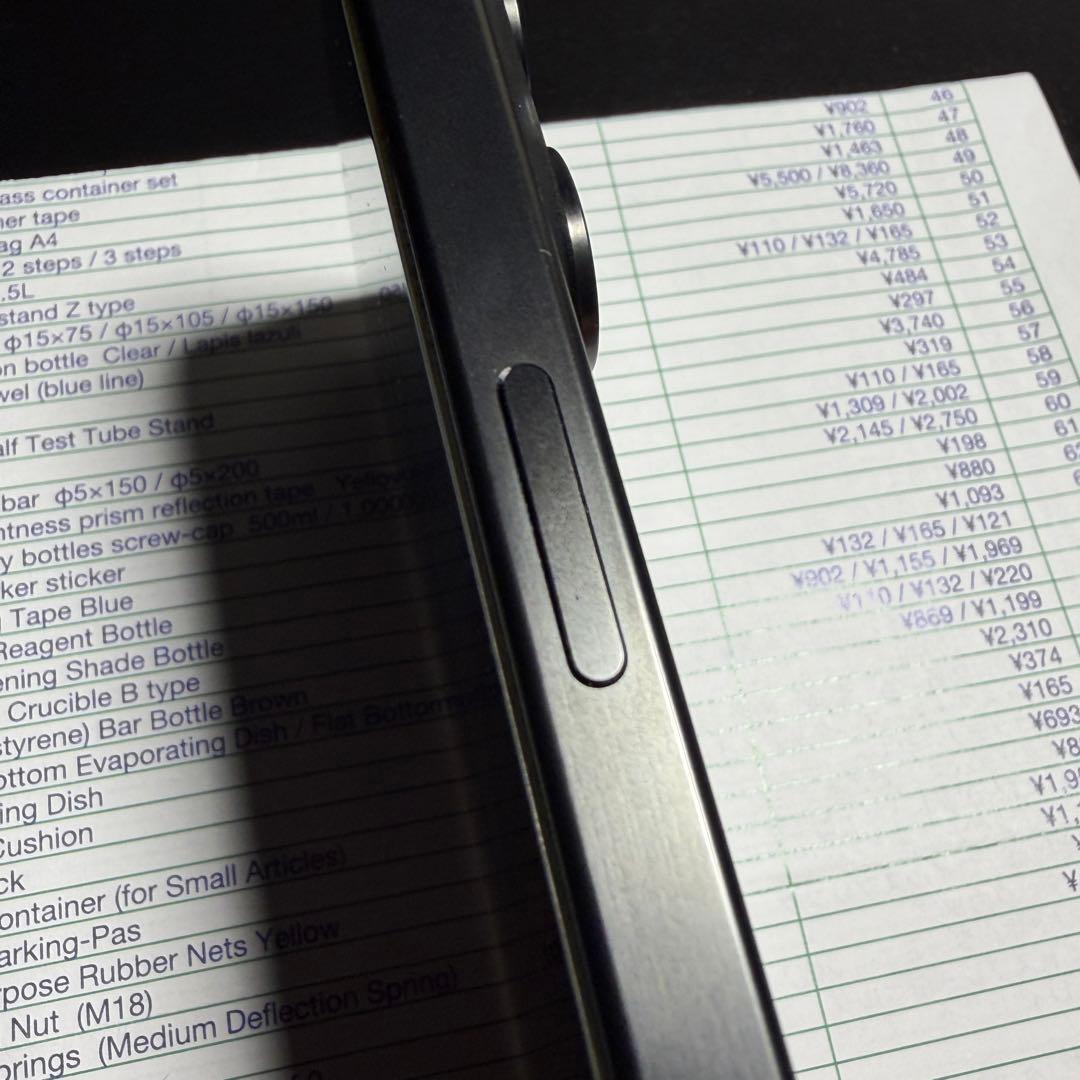 ass container set
ner tape
ag A4
2 steps / 3 steps
.5L
stand Z type
φ15×75 / φ15×105 / φ15×150
on bottle Clear / Lapis lazuli
wel (blue line)
alf Test Tube Stand
bar φ5×150 / φ5×200
ntness prism reflection tape Yellow
y bottles screw-cap 500ml / 1,000
ker sticker
Tape Blue
Reagent Bottle
ening Shade Bottle
Crucible B type
styrene) Bar Bottle Brown
ottom Evaporating Dish / Flat Bottom
ing Dish
Cushion
ck
ontainer (for Small Articles)
arking-Pas
pose Rubber Nets Yellow
Nut (M18)
prings (Medium Deflection Spring)
¥902 46
¥1,760 47
¥1,463 48
¥5,500 / ¥8,360 49
¥5,720 50
¥1,650 51
¥110 / ¥132 / ¥165 52
¥4,785 53
¥484 54
¥297 55
¥3,740 56
¥319 57
¥110 / ¥165 58
¥1,309 / ¥2,002 59
¥2,145 / ¥2,750 60
¥198 61
¥880
¥1,093
¥132 / ¥165 / ¥121
¥902 / ¥1,155 / ¥1,969
¥110 / ¥132 / ¥220
¥869 / ¥1,199
¥2,310
¥374
¥165
¥693
¥8
¥1,9
¥1,
¥
¥